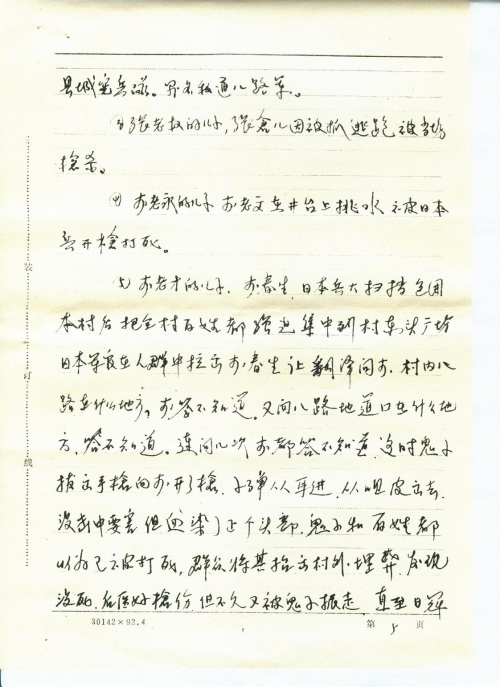 县城宪兵队。罪名私通八路军。
3)张老叔的儿子,张仓儿因被抓逃跑被当场
枪杀。
4)孙老永的儿子孙老文在井台上挑水被日本
兵开枪打死。
5)孙老才的儿子,孙春生,日本兵大扫荡包围
本村后把全村百姓都 集中到村东头广场
日本军官在人群中拉出孙春生让翻译问孙,村内八
路在什么地方。孙答不知道。又问八路地道口在什么地
方,答不知道。连问几次孙都答不知道,这时鬼子
拔出手枪向孙开了枪,子弹从耳进,从 皮出去,
没击中要害但血染了正个头部,鬼子和百姓都
以为已被打死,群众将其抬出村外埋葬,发现
没死,后医好枪伤,但不久又被鬼子抓走,直至日寇
装 订 线
30142×92.4
第 5 页